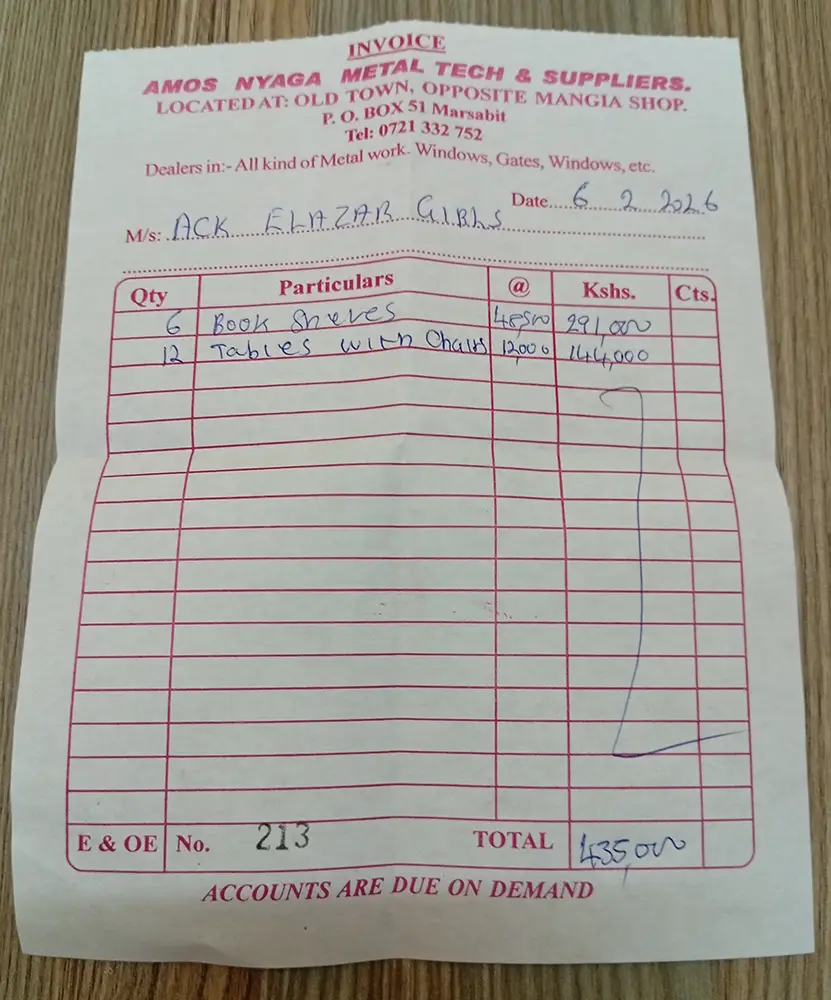 INVOICE
AMOS NYAGA METAL TECH & SUPPLIERS.
LOCATED AT: OLD TOWN, OPPOSITE MANGIA SHOP.
P. O. BOX 51 Marsabit
Tel: 0721 332 752
Dealers in:- All kind of Metal work. Windows, Gates, Windows, etc.
Date 6 2 2026
M/s: ACK ELAZAR GIRLS
Qty Particulars @ Kshs. Cts.
6 Book Shelves 48500 291,000
12 Tables with Chairs 12000 144,000
E & OE No. 213 TOTAL 435,000
ACCOUNTS ARE DUE ON DEMAND